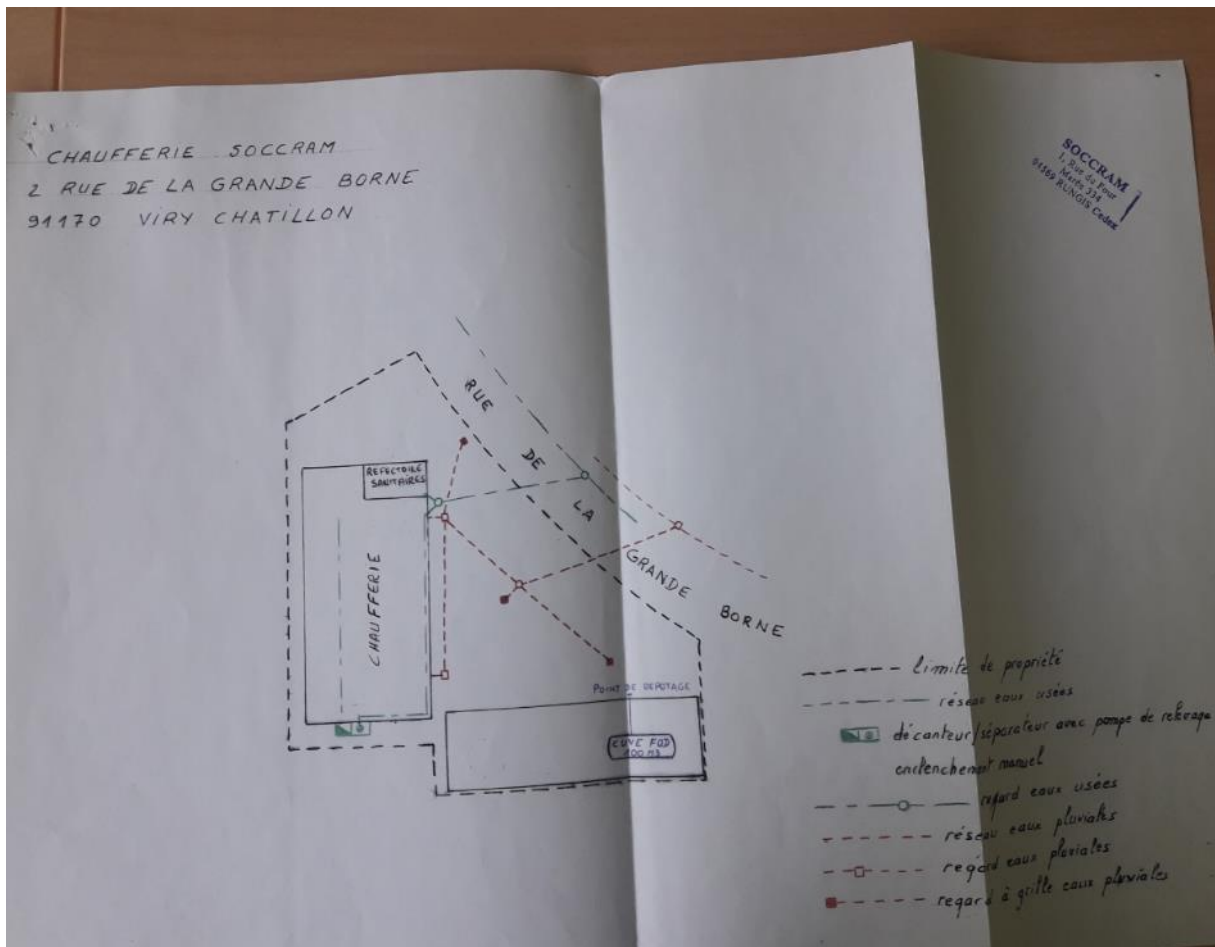 CHAUFFERIE SOCCRAM
2 RUE DE LA GRANDE BORNE
91170 VIRY CHATILLON
SOCCRAM
1, Rue du Four
91569 RUNGIS Cedex
RUE DE LA GRANDE BORNE
REFECTOIRE
SANITAIRES
CHAUFFERIE
POINT DE DEPOTAGE
CUVE FOD
100 M3
limite de propriété
réseau eaux usées
décanteur/séparateur avec pompe de relevage
enclenchement manuel
regard eaux usées
réseau eaux pluviales
regard eaux pluviales
regard à grille eaux pluviales